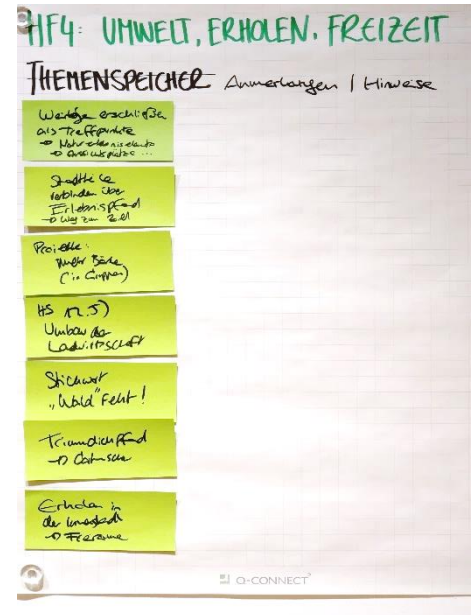 HF4: UMWELT, ERHOLEN, FREIZEIT
THEMENSPEICHER Anmerkungen | Hinweise
erschließen
als Treffpunkte
→ Naturerlebnis
→ Aussichtsplätze ...
Stadtteile
verbinden über
Erlebnispfad
→ Weg zum Ziel
Projekte:
mehr Bänke
(in Gruppen)
HS 12.5)
Umbau der
Landwirtschaft
Stichwort
„Wald" fehlt!
pfad
→
Erholen in
der Innenstadt
→ Freiräume
Q-CONNECT